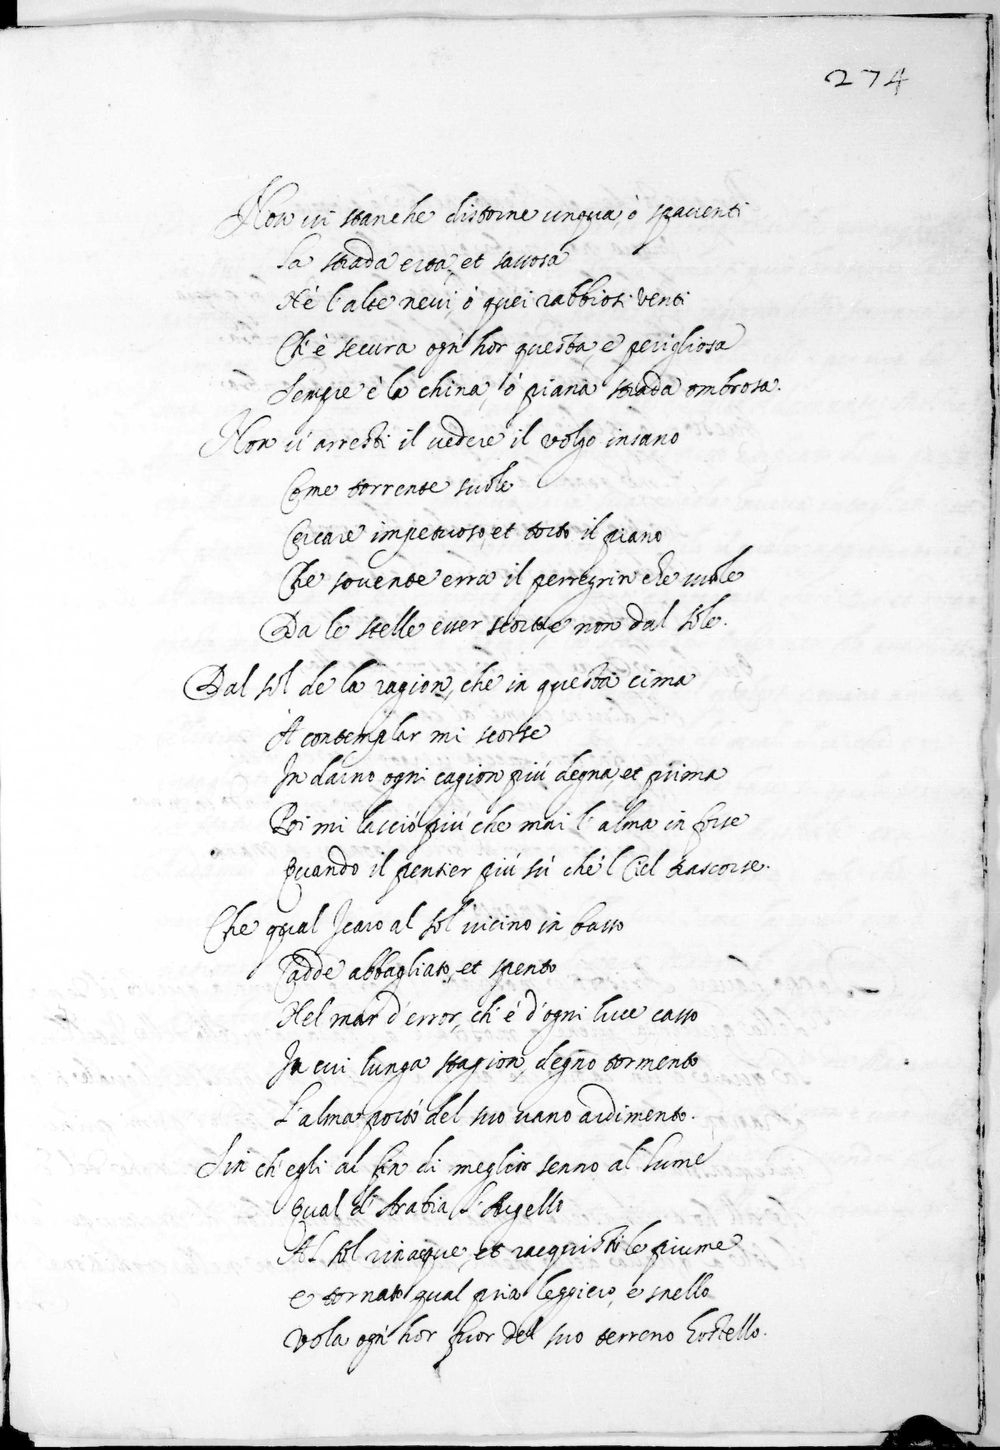 274
Non vi stanche distorne unqua, ò spaventi
La strada erta, et sassosa
Nè l'alte nevi, ò quei rabbiosi venti
Ch'è secura ogn'hor questa, e perigliosa
Sempre è la china, ò piana strada ombrosa.
Non v'arresti il vedere il volgo insano
Come torrente suole
Cercare impetuoso, et torto il piano
Che sovente erra il perregrin che vuole
Da le stelle esser scorto, e non dal sole.
Dal sol de la ragion, che in questa cima
A contemplar mi scorse
In darno ogni cagion più degna, et prima
Poi mi lasciò più che mai l'alma in forse
Quando il pensier più sù che'l Ciel trascorse.
Che qual Icaro al sol vicino in basso
Cadde abbagliato, et spento
Nel mar d'error, ch'è d'ogni luce casso
In cui lunga stagion, degno tormento
L'alma portò del suo vano ardimento.
Sin ch'egli al fin di miglior senno al lume
Qual d'Arabia l'Augello
Al sol rinacque, et racquistò le piume
e tornato qual pria leggiero, e snello
Vola ogn'hor fuor del suo terreno hostello.